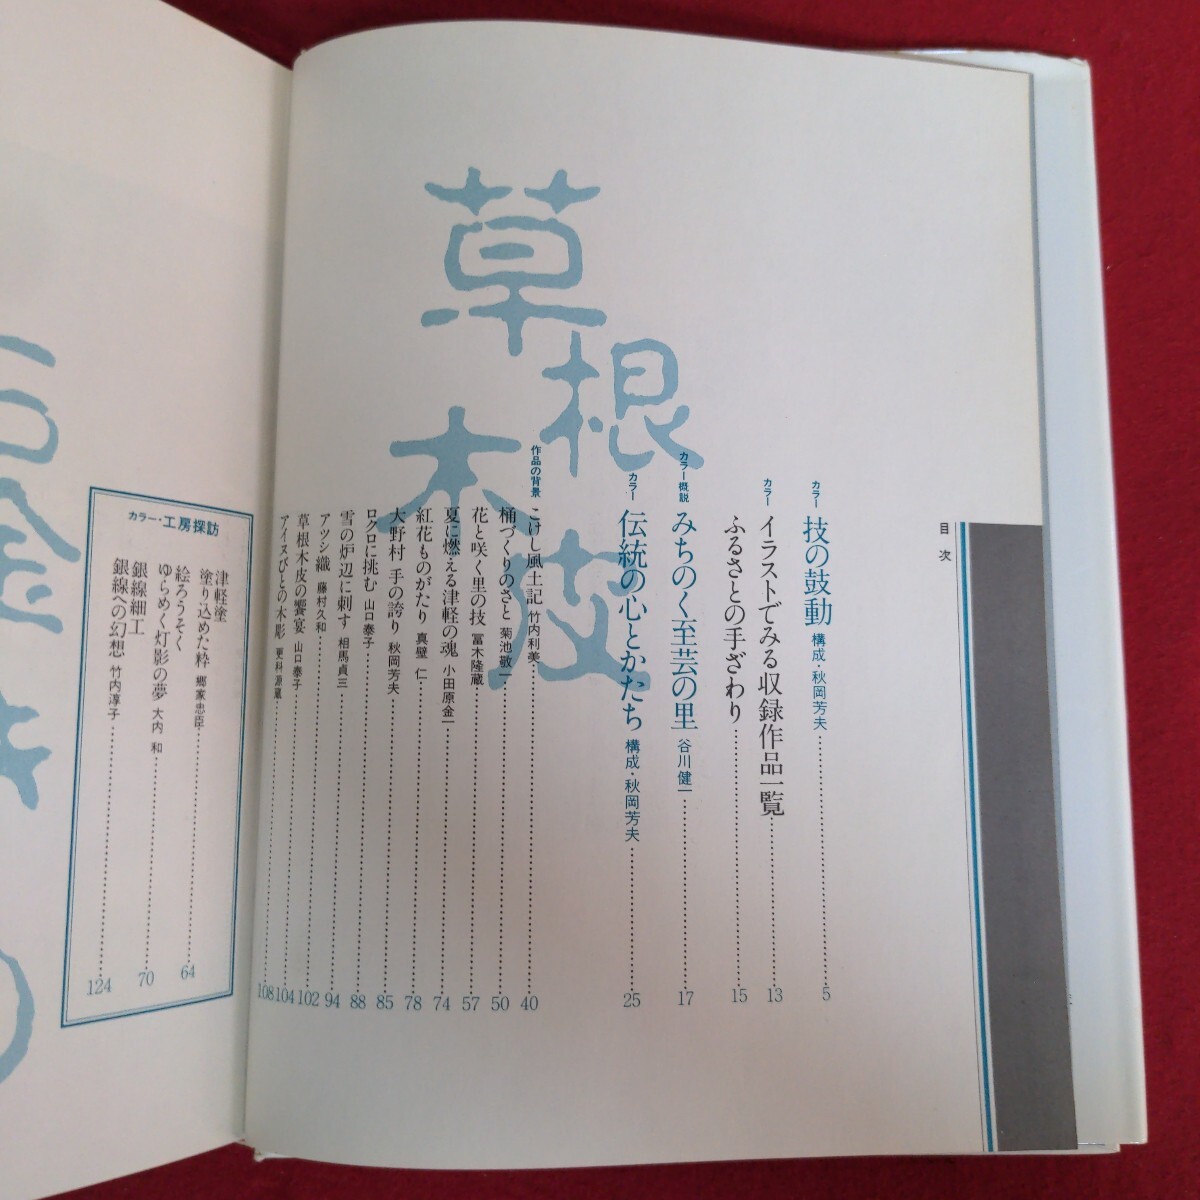 目次
カラー 技の鼓動 構成・秋岡芳夫 5
カラー イラストでみる収録作品一覧 13
ふるさとの手ざわり 15
カラー概説 みちのく至芸の里 谷川健一 17
カラー 伝統の心とかたち 構成・秋岡芳夫 25
作品の背景
こけし風土記 竹内利美 40
桶づくりのさと 菊池敬一 50
花と咲く里の技 冨木隆蔵 57
夏に燃える津軽の魂 小田原金一 74
紅花ものがたり 真壁 仁 78
大野村 手の誇り 秋岡芳夫 85
ロクロに挑む 山口泰子 88
雪の炉辺に刺す 相馬貞三 94
アツシ織 藤村久和 102
草根木皮の饗宴 山口泰子 104
アイヌびとの木彫 更科源蔵 108
草根
木皮
カラー・工房探訪
津軽塗
塗り込めた粋 郷家忠臣 64
絵ろうそく
ゆらめく灯影の夢 大内 和 70
銀線細工
銀線への幻想 竹内淳子 124